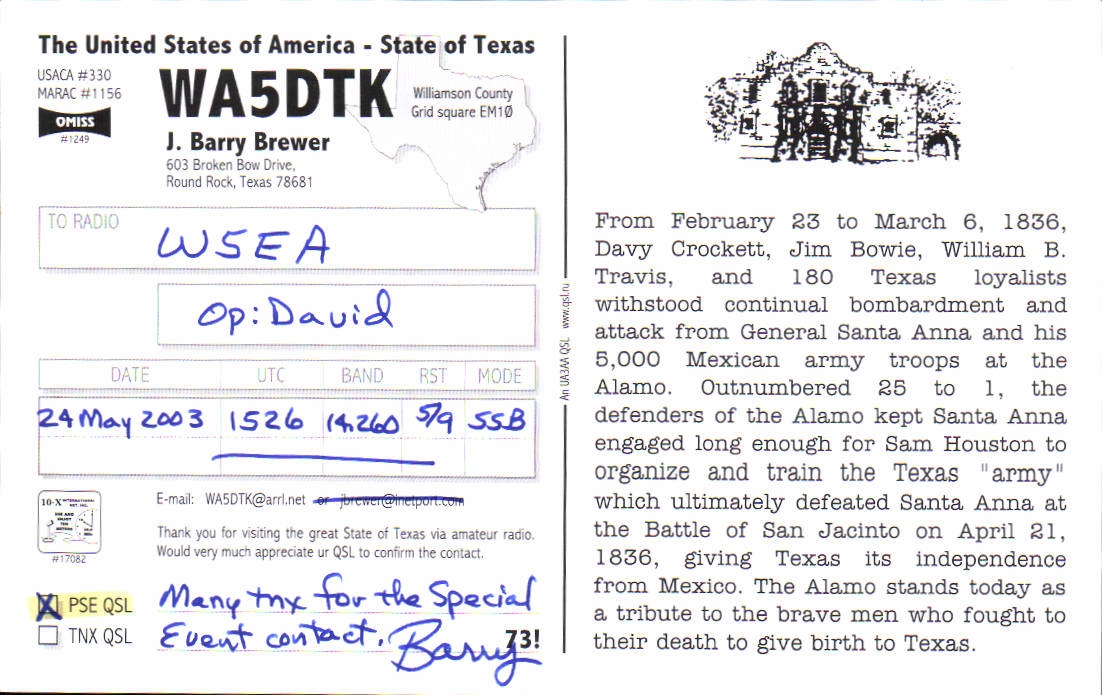 The United States of America - State of Texas
USACA #330
MARAC #1156
OMISS
#1249
WA5DTK
J. Barry Brewer
603 Broken Bow Drive,
Round Rock, Texas 78681
Williamson County
Grid square EM1Ø
TO RADIO
W5EA
Op: David
DATE UTC BAND RST MODE
24 May 2003 1526 14.260 5/9 SSB
10-X INTERNATIONAL
NET, INC.
#17082
E-mail: WA5DTK@arrl.net or jbrewer@inetport.com
Thank you for visiting the great State of Texas via amateur radio.
Would very much appreciate ur QSL to confirm the contact.
X PSE QSL
TNX QSL
Many tnx for the Special
Event contact.
73!
Barry
An UA3AA QSL www.qsl.ru
From February 23 to March 6, 1836,
Davy Crockett, Jim Bowie, William B.
Travis, and 180 Texas loyalists
withstood continual bombardment and
attack from General Santa Anna and his
5,000 Mexican army troops at the
Alamo. Outnumbered 25 to 1, the
defenders of the Alamo kept Santa Anna
engaged long enough for Sam Houston to
organize and train the Texas "army"
which ultimately defeated Santa Anna at
the Battle of San Jacinto on April 21,
1836, giving Texas its independence
from Mexico. The Alamo stands today as
a tribute to the brave men who fought to
their death to give birth to Texas.